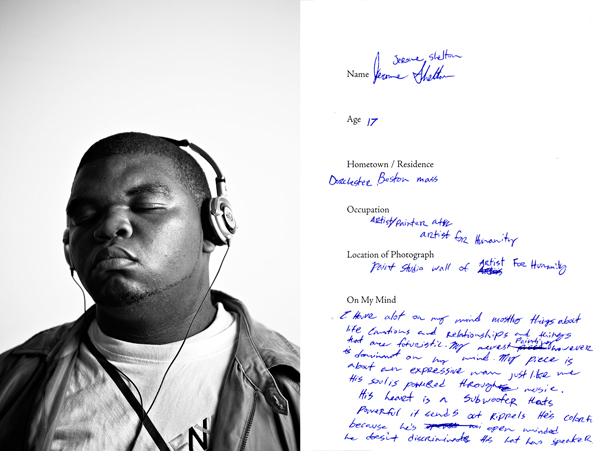 Jerome Shelton
Name Jerome Shelton
Age 17
Hometown / Residence
Dorchester Boston mass
Occupation
Artist/painter at
artist for Humanity
Location of Photograph
Paint Studio wall of Artist For Humanity
On My Mind
I have alot on my mind mostly things about
life emotions and relationships and things
that are futuristic. My newest painting however
is dominant on my mind. My piece is
about an expressive man just like me
His soul is powered through music.
His heart is a subwoofer thats
powerful it sends out rippels He's colorful
because he's open minded
he doesn't discriminate His hat has speaker
N